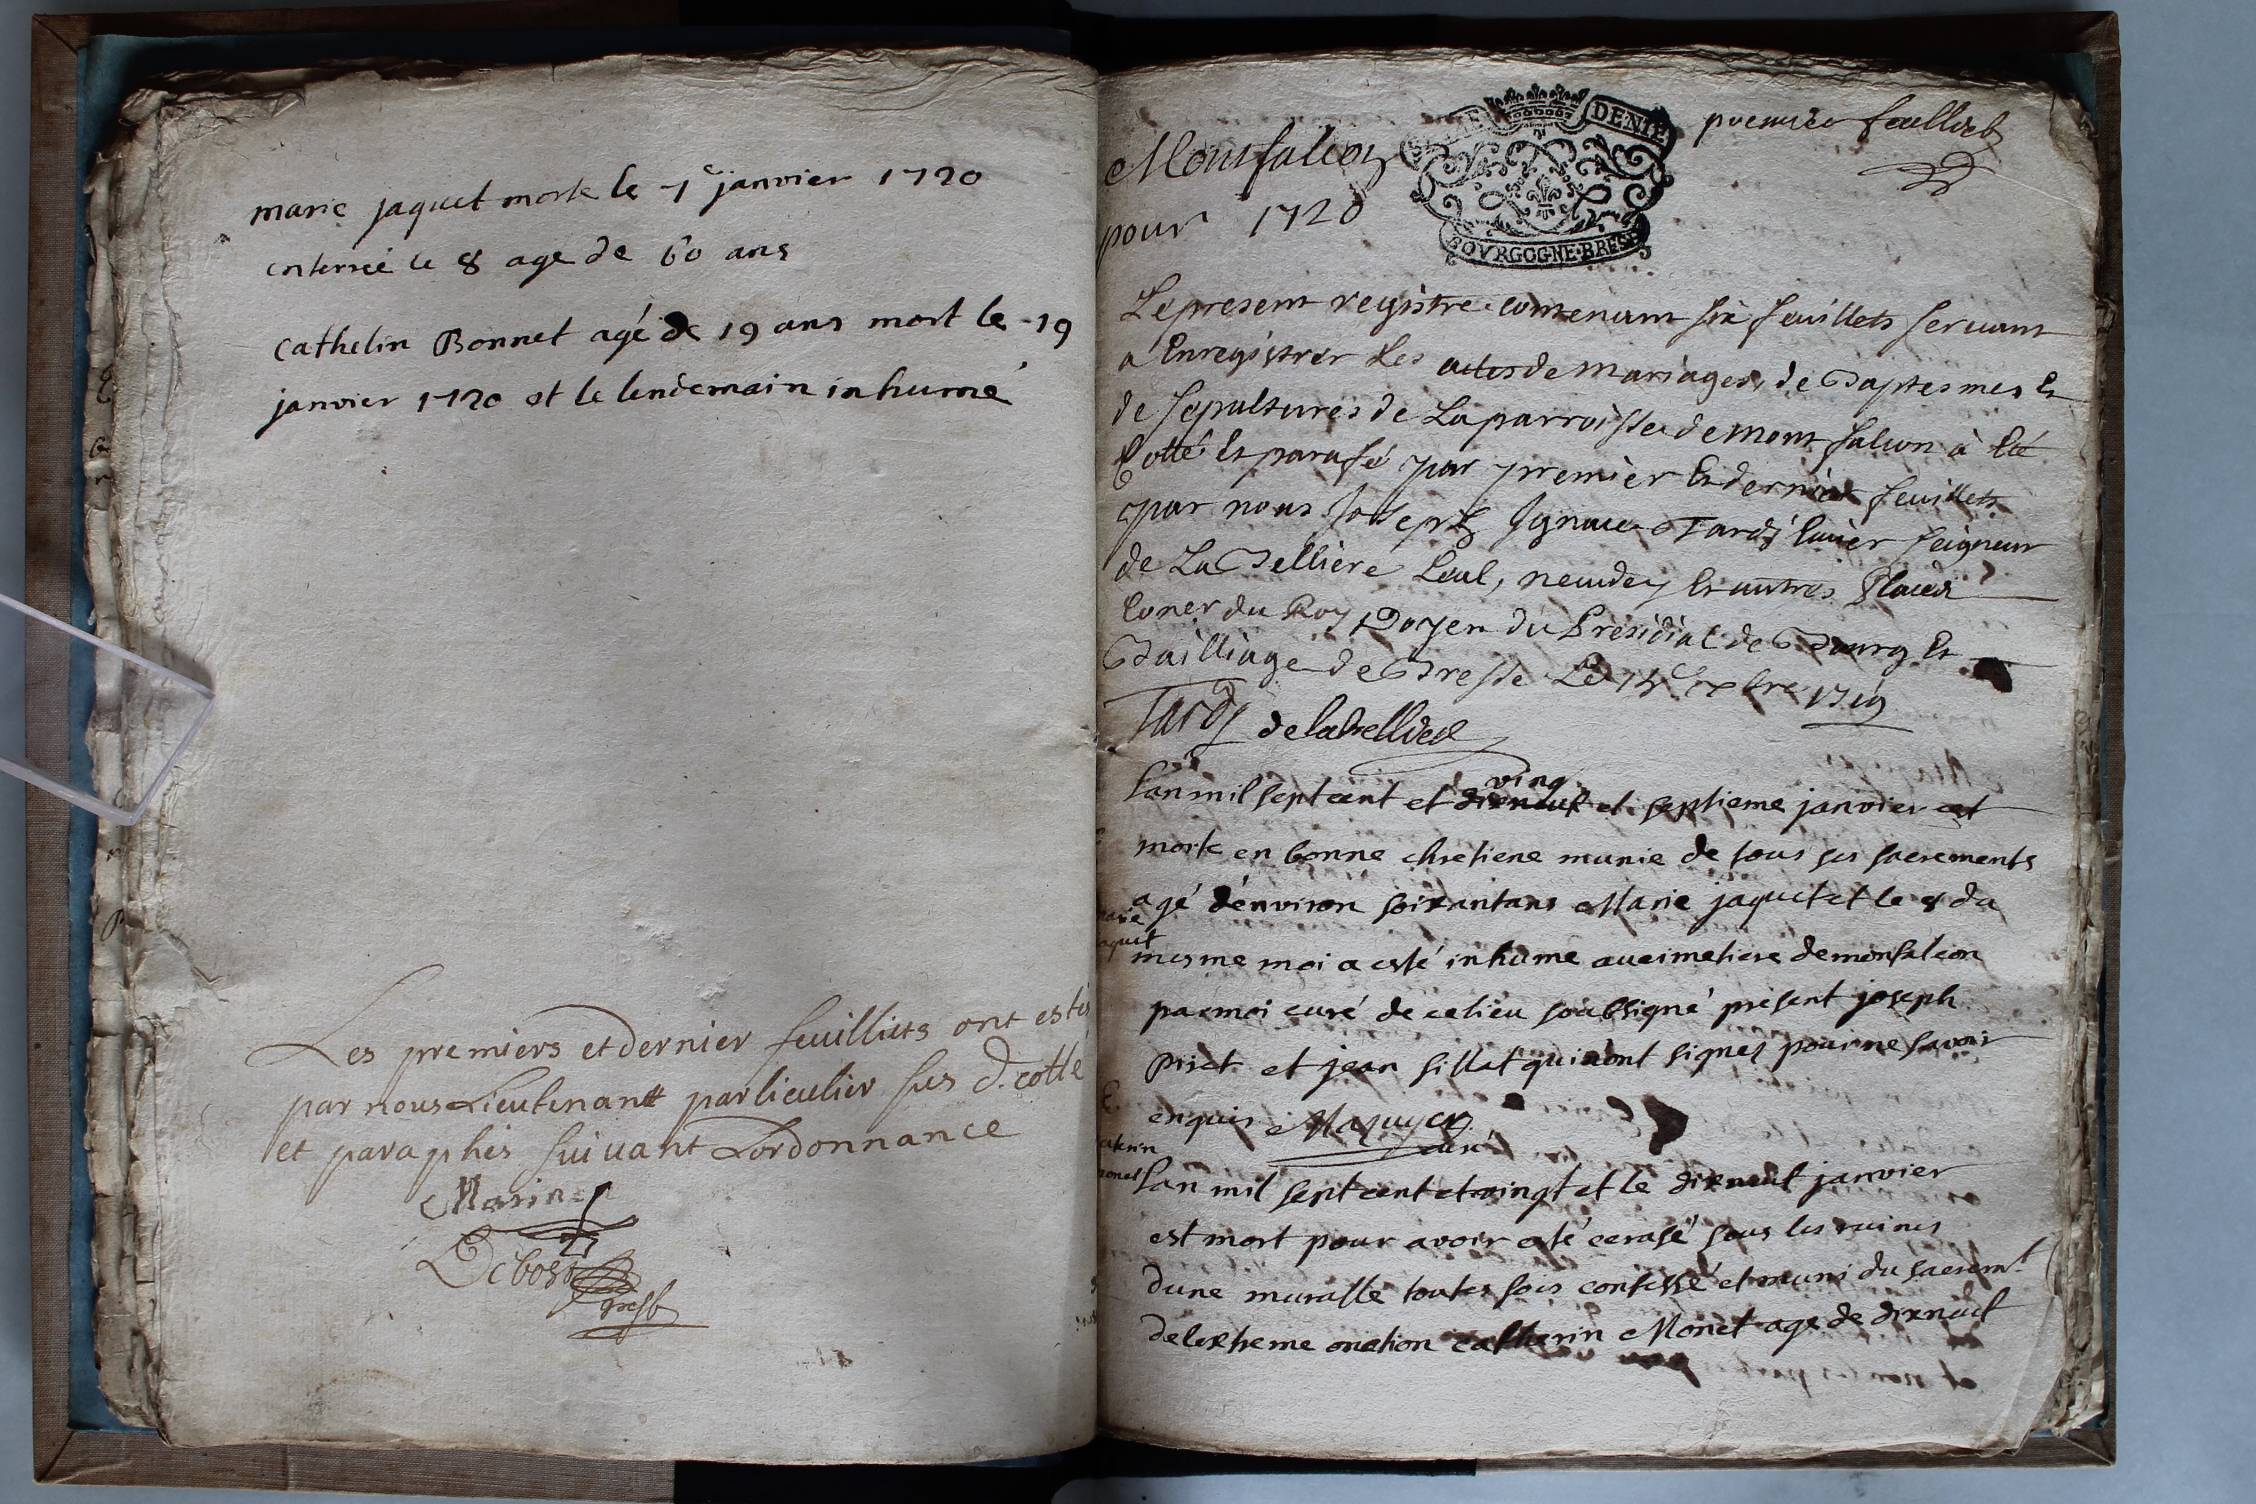 marie jaquet morte le 7e janvier 1720
enterrée le 8 age de 60 ans
cathelin Bonnet agé de 19 ans mort le 19
janvier 1720 et le lendemain inhumé
Les premiers et dernier feuilliets ont estés
par nous Lieutenant particulier sus d. cotté
et paraphés suivant Lordonnance
premier feuillet
DENIE
Monfalcon
pour 1720
BOVRGOGNE·BRESE
Le present registre contenant six feuillets servant
a Enregistrer Les actes de mariages, de Baptesmes Et
de sepultures de La parroisse de mont falcon à Eté
Cotté Et parafé par premier Et dernier feuillets
par nous Joseph Ignace Tardy Ecuier seigneur
de La Belliere Leal, neudey Et autres Places
Coner du Roy Doyen du Presidial de Bourg Et
Bailliage de Bresse Le xbre 1719
Tardy de labelliere
ving
Lan mil sept cent et dixneuf et septieme janvier est
morte en bonne chretiene munie de tous ses sacrements
agé dénviron soixantans Marie jaquet et le 8 du
marie
jaquet
mesme moi a esté inhume au cimetiere de monfalcon
par moi curé de ce lieu soubsigné présent joseph
Piret et jean sillat qui nont signes pour ne savoir
enquis Maguyer
curé
Lan mil sept cent et vingt et le dixneuf janvier
est mort pour avoir esté ecrasé sous les ruines
dune muralle toutes fois confessé et muni du sacremt
de lextreme onction catherin Monet age de dixneuf